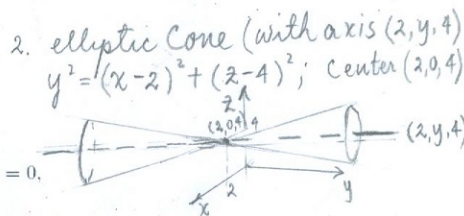 2. elliptic Cone (with axis (2,y,4)
y² = (x-2)² + (z-4)²; Center (2,0,4)
z
(2,0,4) 4
(2,y,4)
= 0,
2
x
y